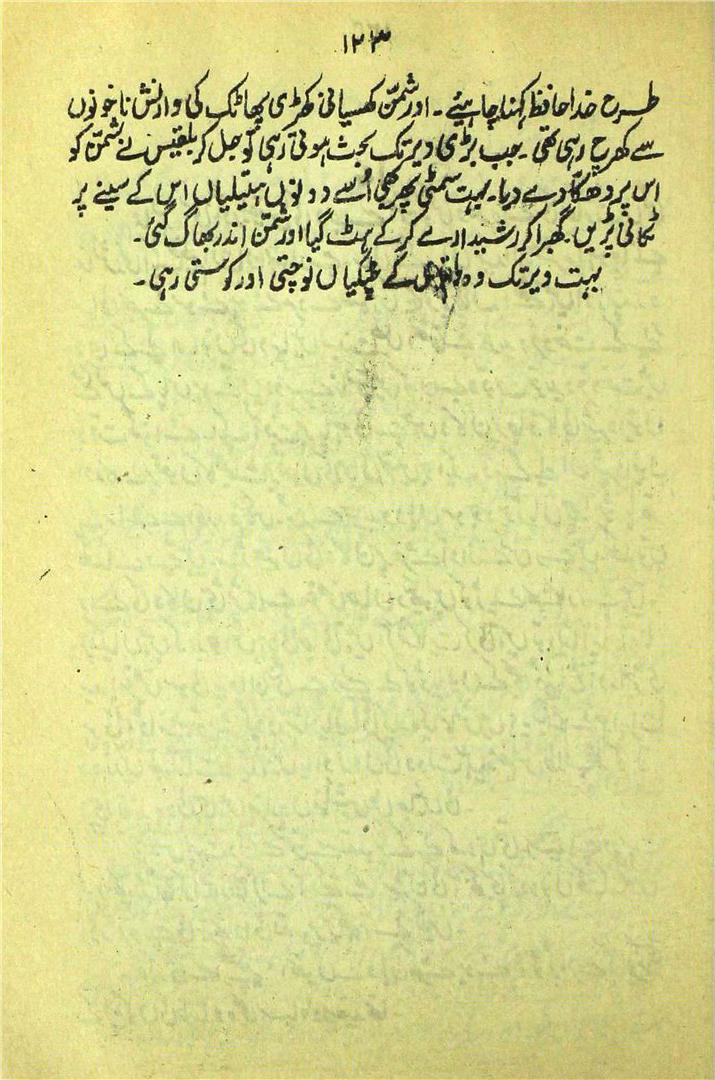 ۱۲۳
طرح خدا حافظ کہنا چاہیئے۔ اور شمّن کھسیانی کھڑی پھاٹک کی وارنش ناخونوں
سے کھرچ رہی تھی۔ جب بڑی دیر تک بحث ہوتی رہی تو جل کر بلقیس نے شمّن کو
اس پر دھکّا دے دیا۔ بہت سمٹی پھر بھی اُسے دونوں ہتیلیاں اس کے سینے پر
ٹکانی پڑیں۔ گھبرا کر رشید ارے کر کے ہٹ گیا اور شمّن اندر بھاگ گئی۔
بہت دیر تک وہ کے چٹکیاں نوچتی اور کوستی رہی۔